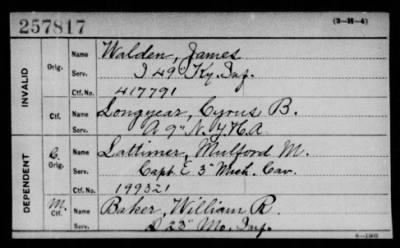 257817 (3-H-4)
INVALID
Orig. Name Walden, James
Serv. I 49" Ky. Inf.
Ctf. No. 417791
Ctf. Name Longyear, Cyrus B.
Serv. A 9" N.Y.H.A.
DEPENDENT
C. Orig. Name Lattimer, Mulford M.
Serv. Capt. E 3" Mich. Cav.
Ctf. No. 199321
M. Ctf. Name Baker, William R.
Serv. D 23" Mo. Inf.